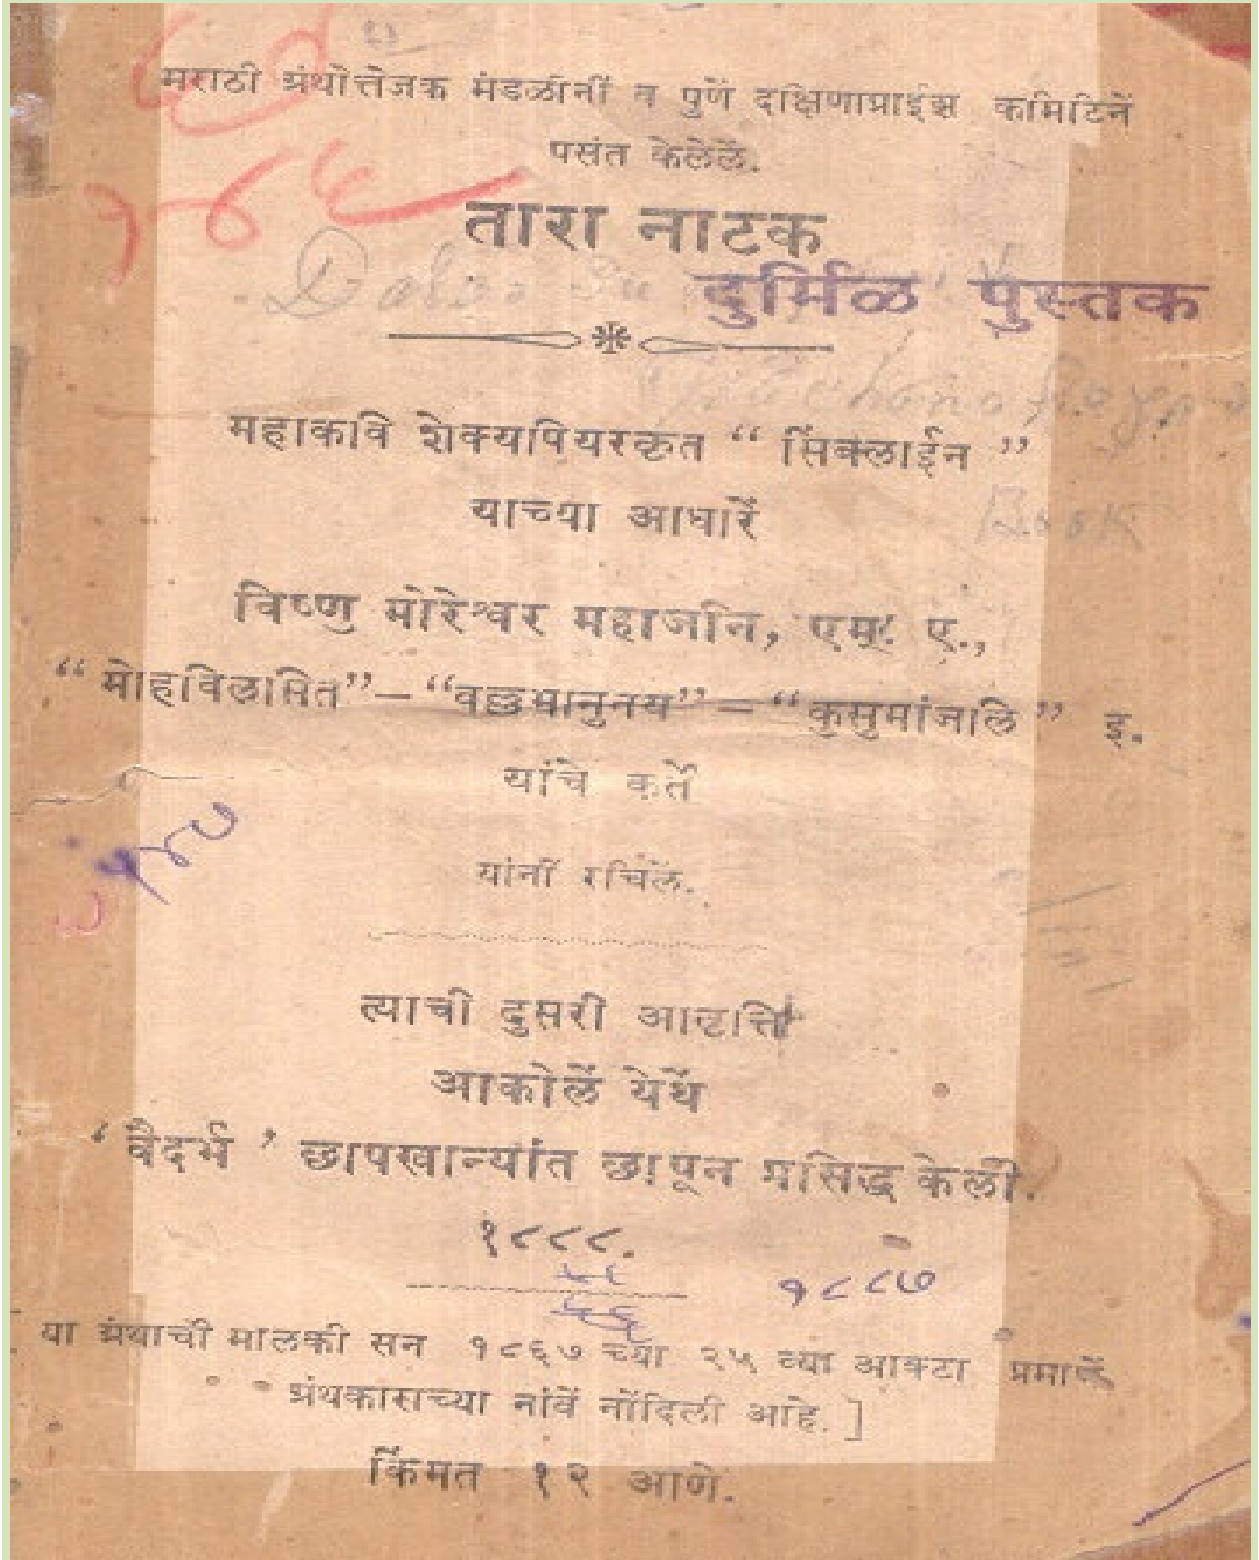 मराठी ग्रंथोत्तेजक मंडळीनीं व पुणें दक्षिणाप्राईझ कमिटिनें
पसंत केलेलें.
तारा नाटक
दुर्मिळ पुस्तक
महाकवि शेक्यपियरकृत “ सिंबलाईन ”
याच्या आधारें
विष्णु मोरेश्वर महाजनि, एम्. ए.,
“मोहविलसित”—“वल्लभानुनय”—“कुसुमांजलि” इ.
यांचे कर्ते
यांनीं रचिलें.
त्याची दुसरी आवृत्ति
आकोलें येथें
‘ वैदर्भ ’ छापखान्यांत छापून प्रसिद्ध केली.
१८८८.
१८८७
या ग्रंथाची मालकी सन १८६७ च्या २५ व्या आक्टा प्रमाणें
ग्रंथकाराच्या नांवें नोंदिली आहे. ]
किंमत १२ आणे.